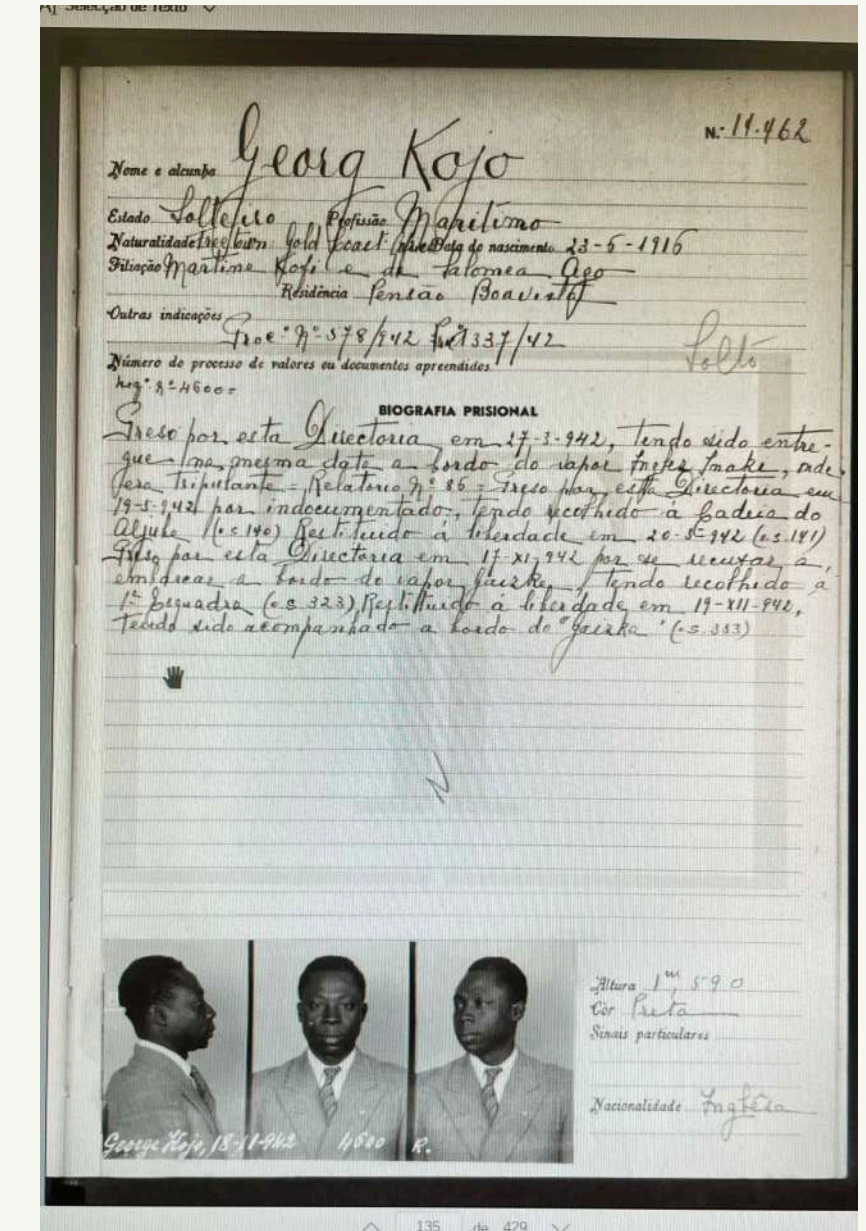 A] Selecção de Texto
N.º 11.462
Nome e alcunha Georg Kojo
Estado Solteiro Profissão Marítimo
Naturalidade Freetown Gold Coast Data do nascimento 23-6-1916
Filiação Martine Kofi e de Salomea Ago
Residência Pensão Boavista
Outras indicações
Proc.º Nº 578/942 1337/42
Solto
Número do processo de valores ou documentos apreendidos
Reg.º Nº 4600=
BIOGRAFIA PRISIONAL
Preso por esta Directoria em 27-3-942, tendo sido entre-
gue na mesma data a bordo do vapor Inaki, onde
era tripulante = Relatório Nº 86 = Preso por esta Directoria em
19-5-942 por indocumentado, tendo recolhido à Cadeia do
Aljube (o.s.140) Restituido à liberdade em 20-5-942 (o.s.141)
Preso por esta Directoria em 17-XI-942 por se recusar a
embarcar a bordo do vapor Gaizka, tendo recolhido à
1ª Esquadra (o.s.323) Restituido à liberdade em 19-XII-942,
tendo sido acompanhado a bordo do "Gaizka" (o.s.353)
N
Altura 1m,590
Côr Preta
Sinais particulares
Nacionalidade Inglêsa
George Kojo, 18-11-942 4600 R.
135 de 429